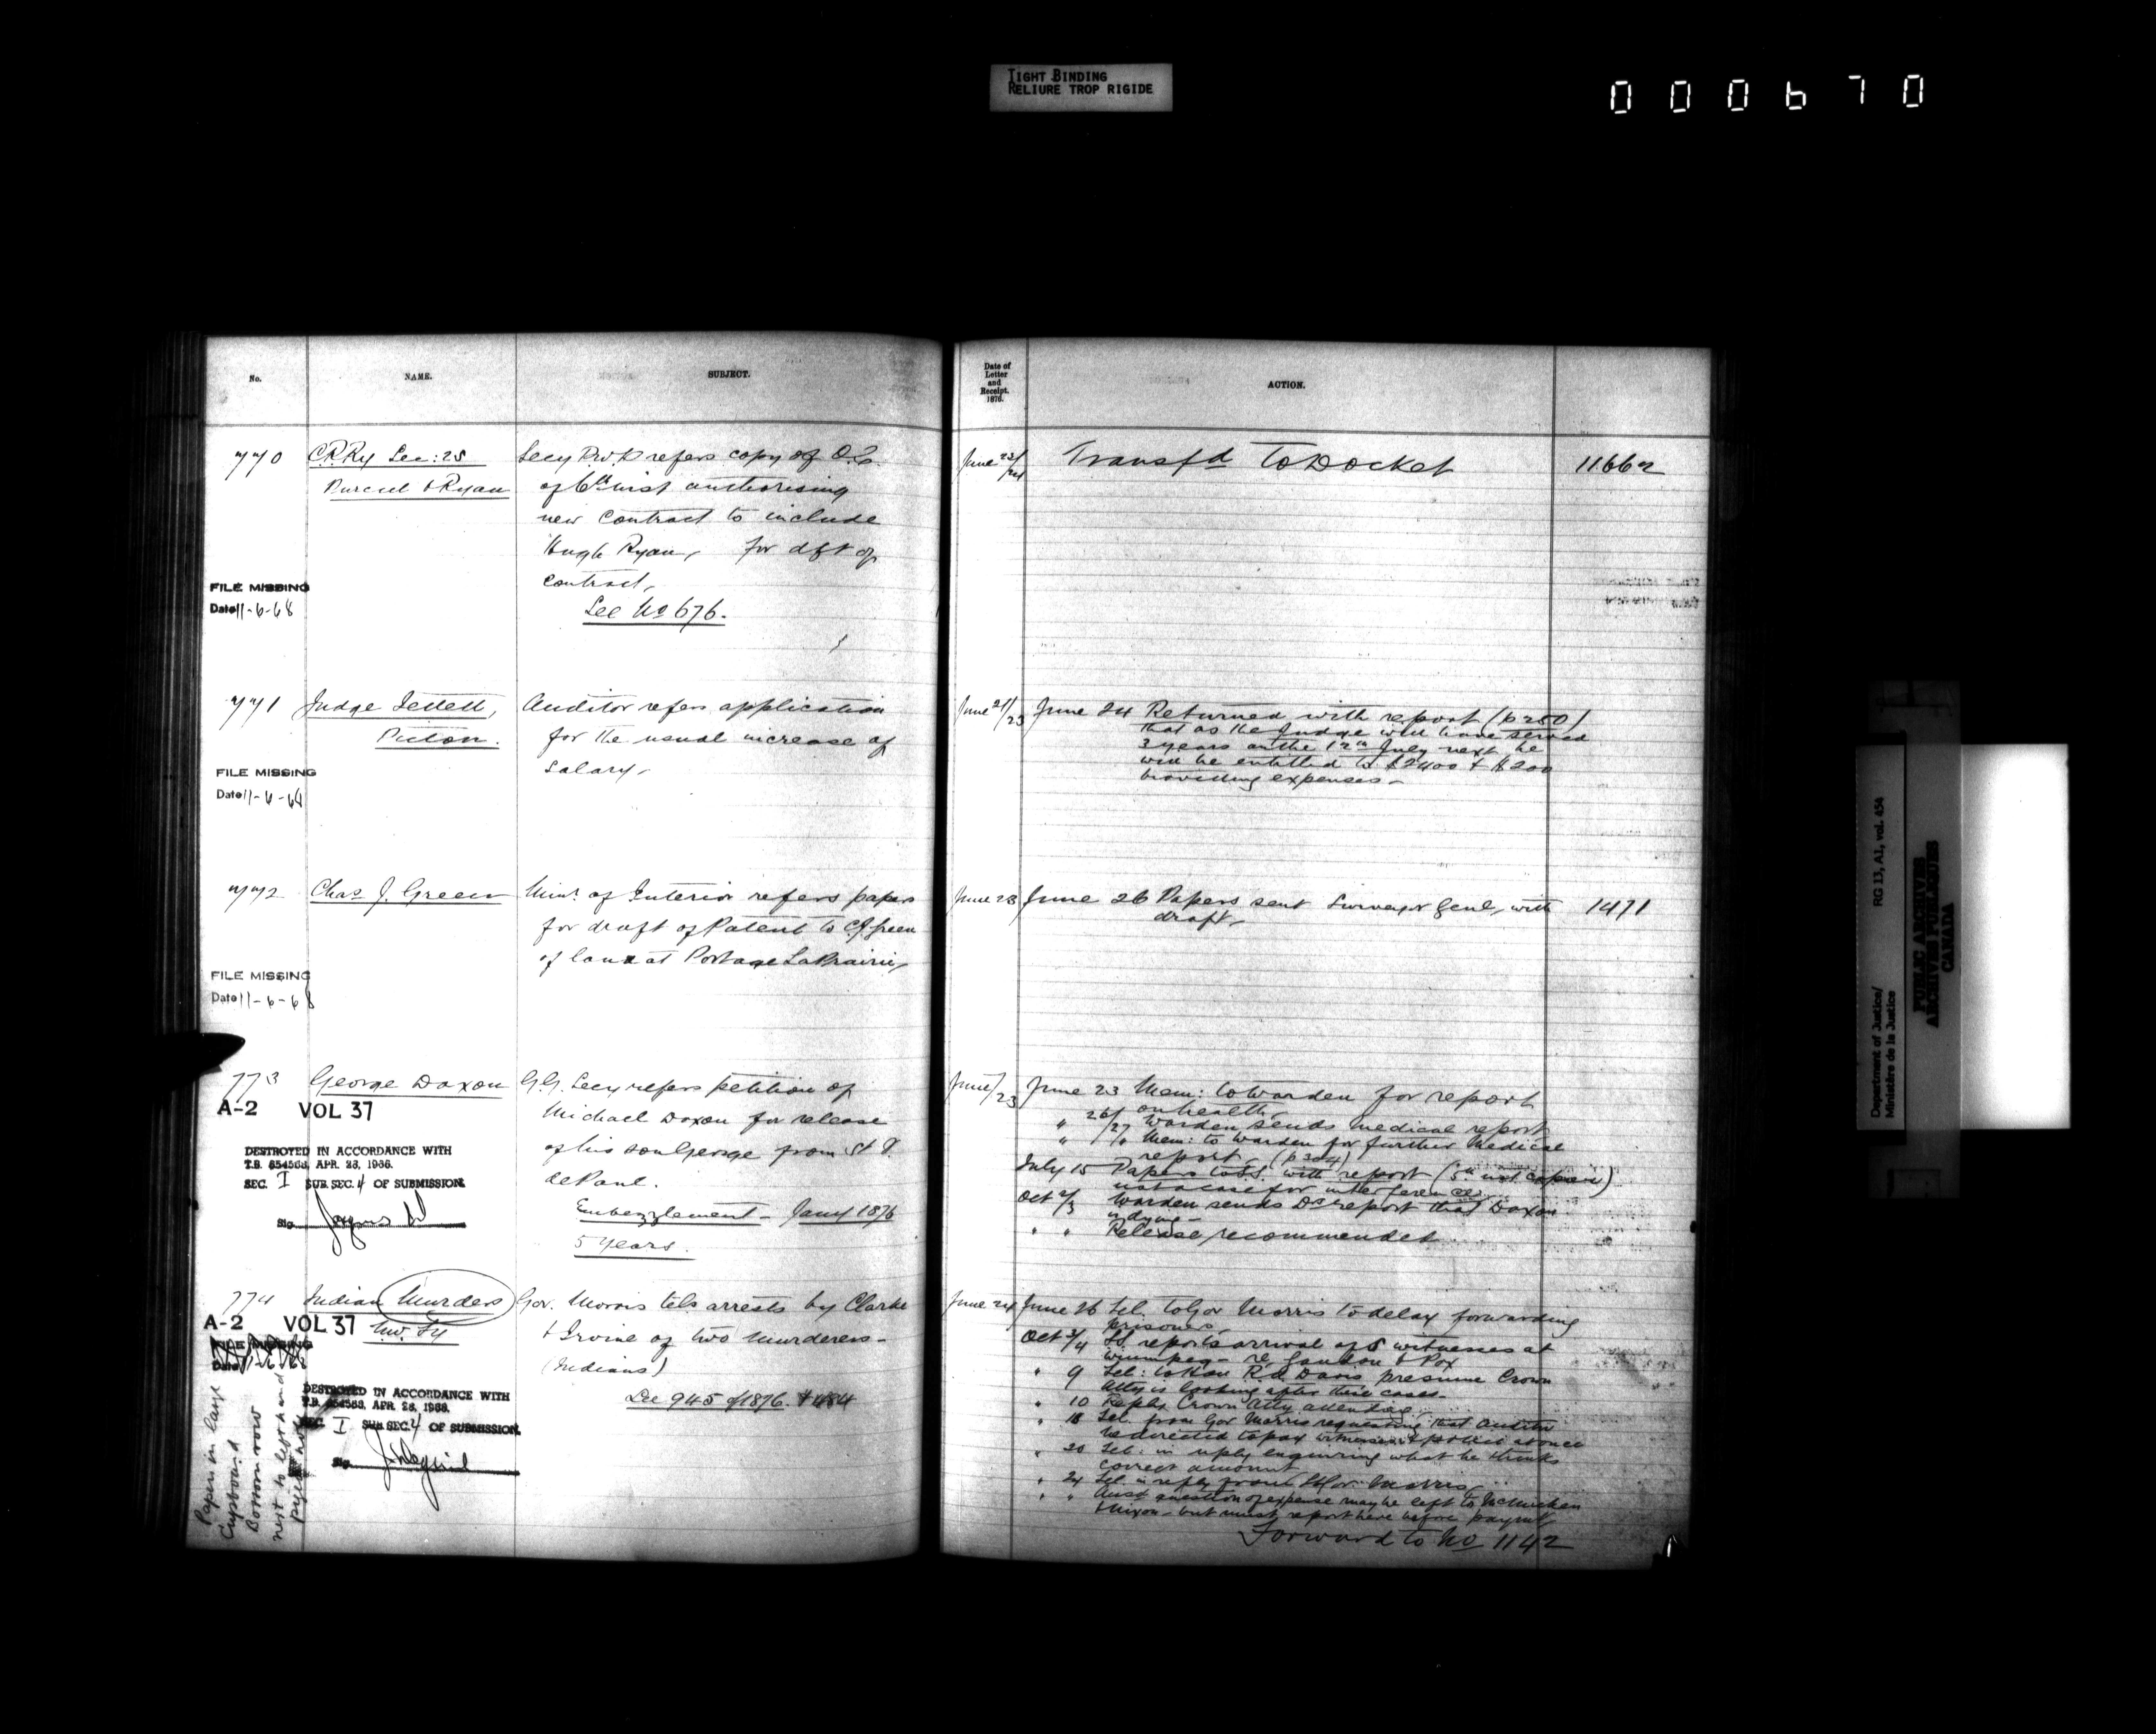 TIGHT BINDING
RELIURE TROP RIGIDE
000670
No.
NAME.
SUBJECT.
770
C.P.Ry Sec: 25
Purcell & Ryan
Secy P.W.D refers copy of O.C.
of 6th inst authorising
new contract to include
Hugh Ryan, for dft of
contract,
See No 676.
FILE MISSING
Date 11-6-68
771
Judge Jellett,
Picton.
Auditor refers application
for the usual increase of
salary-
FILE MISSING
Date 11-6-68
772
Chas J. Green
Minr. of Interior refers papers
for draft of Patent to C.J. Green
of land at Portage La Prairie,
FILE MISSING
Date 11-6-68
773
George Daxon
A-2 VOL 37
G.G. Secy refers petition of
Michael Daxon for release
of his son George from St V.
de Paul.
Embezzlement - Jany 1876
5 years.
DESTROYED IN ACCORDANCE WITH
T.B. 654563, APR. 28, 1966.
SEC. I SUB. SEC. 4 OF SUBMISSION.
Sig.
774
Indian Murders
N.W. Ty
A-2 VOL 37
Gov. Morris tels arrests by Clarke
& Irvine of two murderers-
(Indians)
See 945 of 1876. & 484
FILE MISSING
Date 11-6-68
DESTROYED IN ACCORDANCE WITH
T.B. 654563, APR. 28, 1966.
SEC. I SUB. SEC. 4 OF SUBMISSION.
Sig.
Papers in large
Cupboard
Bottom row
next to left hand
Date of
Letter
and
Receipt.
1876.
ACTION.
June 23/24
Transfd to Docket
11662
June 21/23
June 24 Returned with report (p 250)
that as the Judge will have served
3 years on the 12th July next he
will be entitled to $2400 & $200
travelling expenses-
June 23
June 26 Papers sent Surveyor Genl, with
draft,
1471
June /23
June 23 Mem: to Warden for report
on health,
" 26/27 Warden sends medical report
" " Mem: to Warden for further Medical
report (p 304)
July 15 Papers to S.S. with report (5th not copied)
not a case for interference
Oct 2/3 Warden sends Drs report that Daxon
is dying-
" " Release recommended
June 24
June 26 Tel. to Gov Morris to delay forwarding
prisoners,
Oct 3/4 reports arrival of 5 witnesses at
Winnipeg - re & Fox
" 9 Tel: to Hon R.A. Davis presume Crown
Atty is looking after these cases-
" 10 Reply Crown Atty attending
" 18 Tel. from Gov Morris requesting that Auditor
be directed to pay witnesses & police at once
" 20 Tel: in reply enquiring what he thinks
correct amount
" 24 Tel. in reply from Gov. Morris,
" " question of expense may be left to McMicken
& Nixon - but must report here before paymt,
Forward to No 1142
Department of Justice/
Ministère de la Justice
RG 13, A1, vol. 454
PUBLIC ARCHIVES
ARCHIVES PUBLIQUES
CANADA